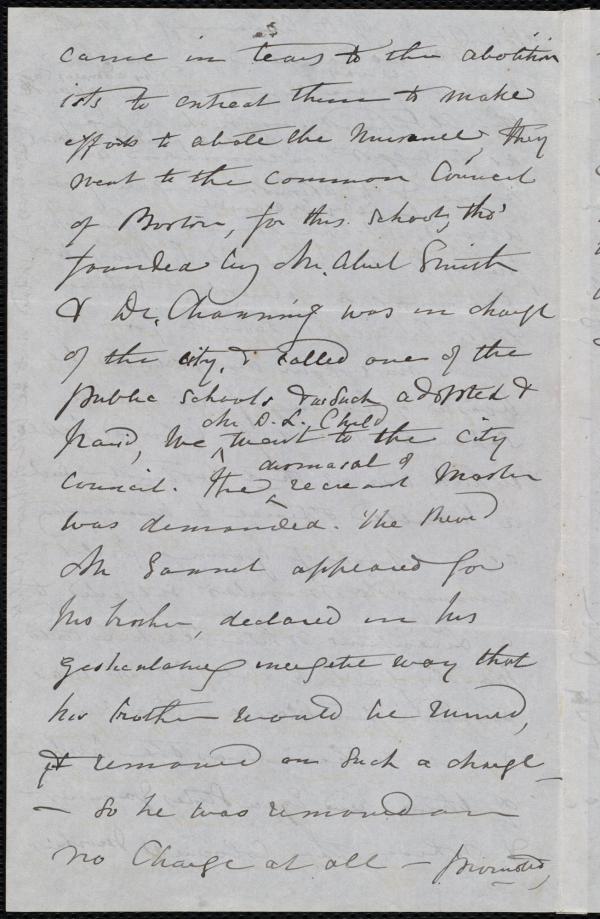 came in tears to the abolition
ists to entreat them to make
efforts to abate the nuisance, they
went to the common Council
of Boston, for this school, tho'
founded by Mr. Abiel Smith
& Dr. Channing was in charge
of the city, & called one of the
public schools & as such adopted &
paid, We Mr D. L. Child went to the city
Council. The dismissal of recreant Master
was demanded. The Revd
Mr Gannet appeared for
his brother, declared in his
gesticulating energetic way that
his brother would be ruined,
if removed on such a charge –
– So he was removed on
no Charge at all – promoted,